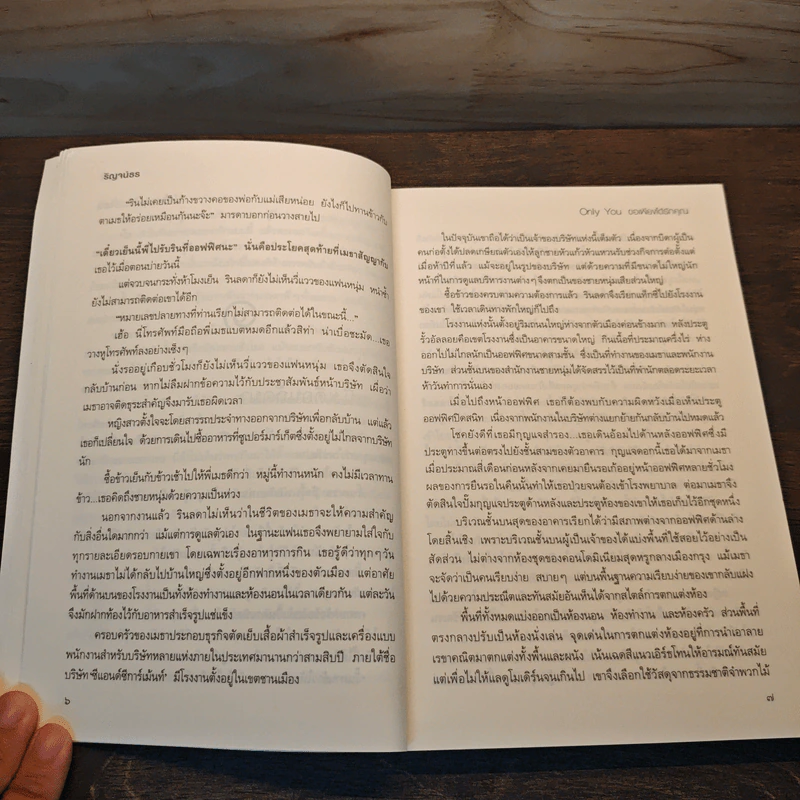 ริญจน์ธร
"รินไม่เคยเป็นก้างขวางคอของพ่อกับแม่เสียหน่อย ยังไงก็ไปทานข้าวกับ
ตาเมธให้อร่อยเหมือนกันนะจ๊ะ" มารดาบอกก่อนวางสายไป
"เดี๋ยวเย็นนี้พี่ไปรับรินที่ออฟฟิศนะ" นั่นคือประโยคสุดท้ายที่เมธาสัญญากับ
เธอไว้เมื่อตอนบ่ายวันนี้
แต่จวบจนกระทั่งห้าโมงเย็น รินลดาก็ยังไม่เห็นวี่แววของแฟนหนุ่ม หนำซ้ำ
ยังไม่สามารถติดต่อเขาได้อีก
"หมายเลขปลายทางที่ท่านเรียกไม่สามารถติดต่อได้ในขณะนี้..."
เฮ้อ นี่โทรศัพท์มือถือพี่เมธแบตหมดอีกแล้วสิท่า น่าเบื่อชะมัด...เธอ
วางหูโทรศัพท์ลงอย่างเซ็งๆ
นั่งรออยู่เกือบชั่วโมงก็ยังไม่เห็นวี่แววของแฟนหนุ่ม เธอจึงตัดสินใจ
กลับบ้านก่อน หากไม่ลืมฝากข้อความไว้กับประชาสัมพันธ์หน้าบริษัท เผื่อว่า
เมธาอาจติดธุระสำคัญจึงมารับเธอผิดเวลา
หญิงสาวตั้งใจจะโดยสารรถประจำทางออกจากบริษัทเพื่อกลับบ้าน แต่แล้ว
เธอก็เปลี่ยนใจ ด้วยการเดินไปซื้ออาหารที่ซูเปอร์มาร์เก็ตซึ่งตั้งอยู่ไม่ไกลจากบริษัท
นัก
ซื้อข้าวเย็นกับข้าวเช้าไปให้พี่เมธดีกว่า หมู่นี้ทำงานหนัก คงไม่มีเวลาทาน
ข้าว...เธอคิดถึงชายหนุ่มด้วยความเป็นห่วง
นอกจากงานแล้ว รินลดาไม่เห็นว่าในชีวิตของเมธาจะให้ความสำคัญ
กับสิ่งอื่นใดมากกว่า แม้แต่การดูแลตัวเอง ในฐานะแฟนเธอจึงพยายามใส่ใจกับ
ทุกรายละเอียดรอบกายเขา โดยเฉพาะเรื่องอาหารการกิน เธอรู้ดีว่าทุกๆ วัน
ทำงานเมธาไม่ได้กลับไปบ้านใหญ่ซึ่งตั้งอยู่อีกฟากหนึ่งของตัวเมือง แต่อาศัย
พื้นที่ด้านบนของโรงงานเป็นทั้งห้องทำงานและห้องนอนในเวลาเดียวกัน แต่ละวัน
จึงมักฝากท้องไว้กับอาหารสำเร็จรูปแช่แข็ง
ครอบครัวของเมธาประกอบธุรกิจตัดเย็บเสื้อผ้าสำเร็จรูปและเครื่องแบบ
พนักงานสำหรับบริษัทหลายแห่งภายในประเทศมานานกว่าสามสิบปี ภายใต้ชื่อ
บริษัท 'ซีแอนด์ซีการ์เม้นท์' มีโรงงานตั้งอยู่ในเขตชานเมือง
๖
Only You ขอเพียงได้รักคุณ
ในปัจจุบันเขาถือได้ว่าเป็นเจ้าของบริษัทแห่งนี้เต็มตัว เนื่องจากบิดาผู้เป็น
คนก่อตั้งได้ปลดเกษียณตัวเองให้ลูกชายหัวแก้วหัวแหวนรับช่วงกิจการต่อตั้งแต่
เมื่อห้าปีที่แล้ว แม้จะอยู่ในรูปของบริษัท แต่ด้วยความที่มีขนาดไม่ใหญ่นัก
หน้าที่ในการดูแลบริหารงานต่างๆ จึงตกเป็นของชายหนุ่มเสียส่วนใหญ่
ซื้อข้าวของครบตามความต้องการแล้ว รินลดาจึงเรียกแท็กซี่ไปยังโรงงาน
ของเขา ใช้เวลาเดินทางพักใหญ่ก็ไปถึง
โรงงานแห่งนั้นตั้งอยู่ริมถนนใหญ่ห่างจากตัวเมืองค่อนข้างมาก หลังประตู
รั้วอัลลอยคือเขตโรงงานซึ่งเป็นอาคารขนาดใหญ่ กินเนื้อที่ประมาณครึ่งไร่ ห่าง
ออกไปไม่ไกลนักเป็นออฟฟิศขนาดสามชั้น ซึ่งเป็นที่ทำงานของเมธาและพนักงาน
บริษัท ส่วนชั้นบนของสำนักงานชายหนุ่มได้จัดสรรไว้เป็นที่พำนักตลอดระยะเวลา
ห้าวันทำการนั่นเอง
เมื่อไปถึงหน้าออฟฟิศ เธอก็ต้องพบกับความผิดหวังเมื่อเห็นประตู
ออฟฟิศปิดสนิท เนื่องจากพนักงานในบริษัทต่างแยกย้ายกันกลับบ้านไปหมดแล้ว
โชคยังดีที่เธอมีกุญแจสำรอง...เธอเดินอ้อมไปด้านหลังออฟฟิศซึ่งมี
ประตูทางขึ้นต่อตรงไปยังชั้นสามของตัวอาคาร กุญแจดอกนี้เธอได้มาจากเมธา
เมื่อประมาณสี่เดือนก่อนหลังจากเคยมายืนรอเก้ออยู่หน้าออฟฟิศหลายชั่วโมง
ผลของการยืนรอในคืนนั้นทำให้เธอป่วยจนต้องเข้าโรงพยาบาล ต่อมาเมธาจึง
ตัดสินใจปั๊มกุญแจประตูด้านหลังและประตูห้องของเขาให้เธอเก็บไว้อีกชุดหนึ่ง
บริเวณชั้นบนสุดของอาคารเรียกได้ว่ามีสภาพต่างจากออฟฟิศด้านล่าง
โดยสิ้นเชิง เพราะบริเวณชั้นบนผู้เป็นเจ้าของได้แบ่งพื้นที่ใช้สอยไว้อย่างเป็น
สัดส่วน ไม่ต่างจากห้องชุดของคอนโดมิเนียมสุดหรูกลางเมืองกรุง แม้เมธา
จะจัดว่าเป็นคนเรียบง่าย สบายๆ แต่บนพื้นฐานความเรียบง่ายของเขากลับแฝง
ไปด้วยความประณีตและทันสมัยอันเห็นได้จากสไตล์การตกแต่งห้อง
พื้นที่ทั้งหมดแบ่งออกเป็นห้องนอน ห้องทำงาน และห้องครัว ส่วนพื้นที่
ตรงกลางปรับเป็นห้องนั่งเล่น จุดเด่นในการตกแต่งห้องอยู่ที่การนำเอาลาย
เรขาคณิตมาตกแต่งทั้งพื้นและผนัง เน้นเฉดสีแนวเอิร์ธโทนให้อารมณ์ทันสมัย
แต่เพื่อไม่ให้แลดูโมเดิร์นจนเกินไป เขาจึงเลือกใช้วัสดุจากธรรมชาติจำพวกไม้
๗